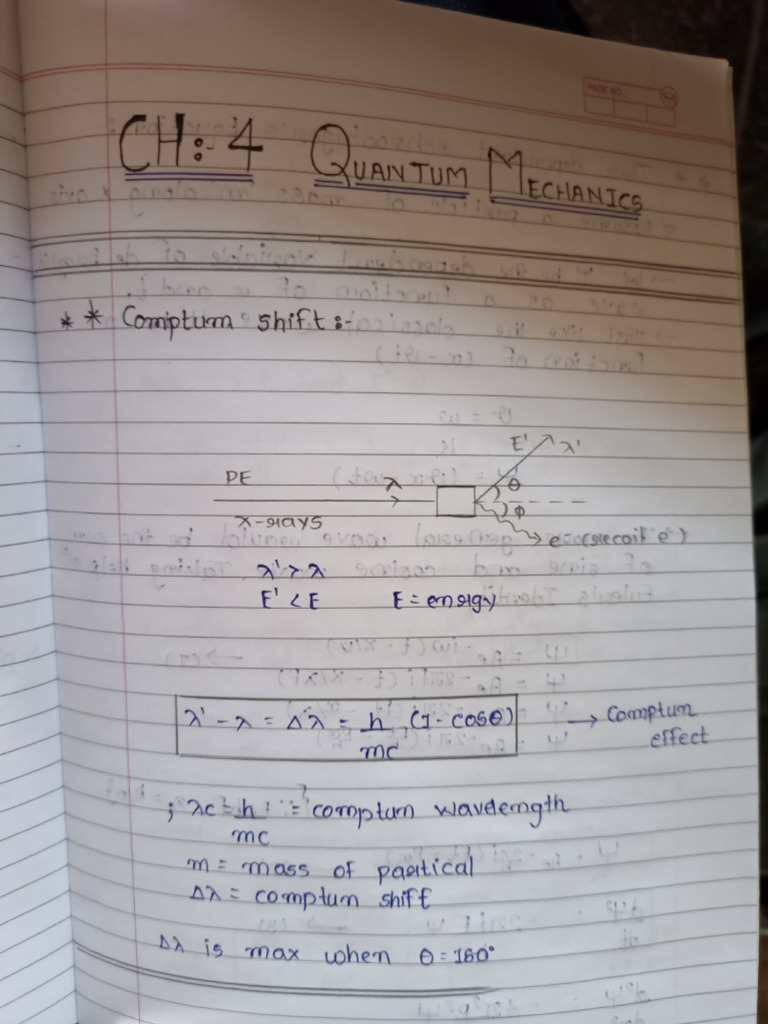 PAGE NO.
CH:- 4 QUANTUM MECHANICS
** Comptum shift :-
E' λ'
PE λ θ
x-rays ϕ
e⁻ (recoil e⁻)
λ' > λ
E' < E E = energy
λ' - λ = Δλ = h/mc (1 - cosθ) → Comptum effect
; λc = h/mc = comptum wavelength
m = mass of partical
Δλ = comptum shift
Δλ is max when θ = 180°